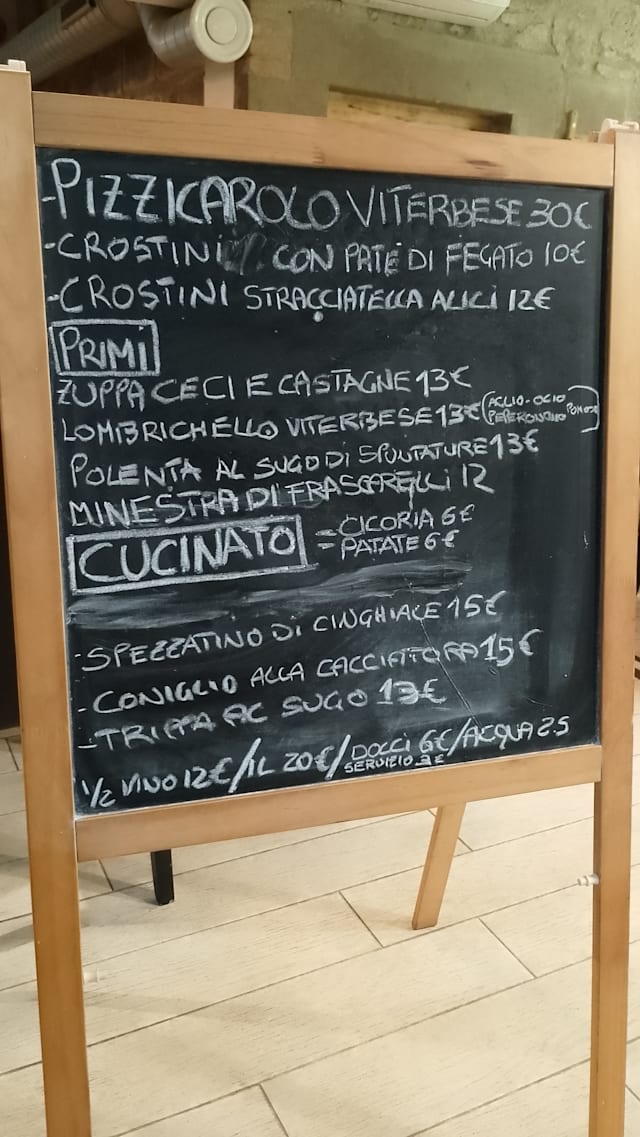 -PIZZICAROLO VITERBESE 30€
-CROSTINI CON PATÈ DI FEGATO 10€
-CROSTINI STRACCIATELLA ALICI 12€
PRIMI
ZUPPA CECI E CASTAGNE 13€
LOMBRICHELLO VITERBESE 13€ (AGLIO-OLIO PEPERONCINO POMOD)
POLENTA AL SUGO DI SPUNTATURE 13€
MINESTRA DI FRASCARELLI 12
CUCINATO = CICORIA 6€
= PATATE 6€
-SPEZZATINO DI CINGHIALE 15€
-CONIGLIO ALLA CACCIATORA 15€
-TRIPPA AL SUGO 13€
1/2 VINO 12€/1L 20€/DOLCI 6€/ACQUA 2.5
SERVIZIO 2€